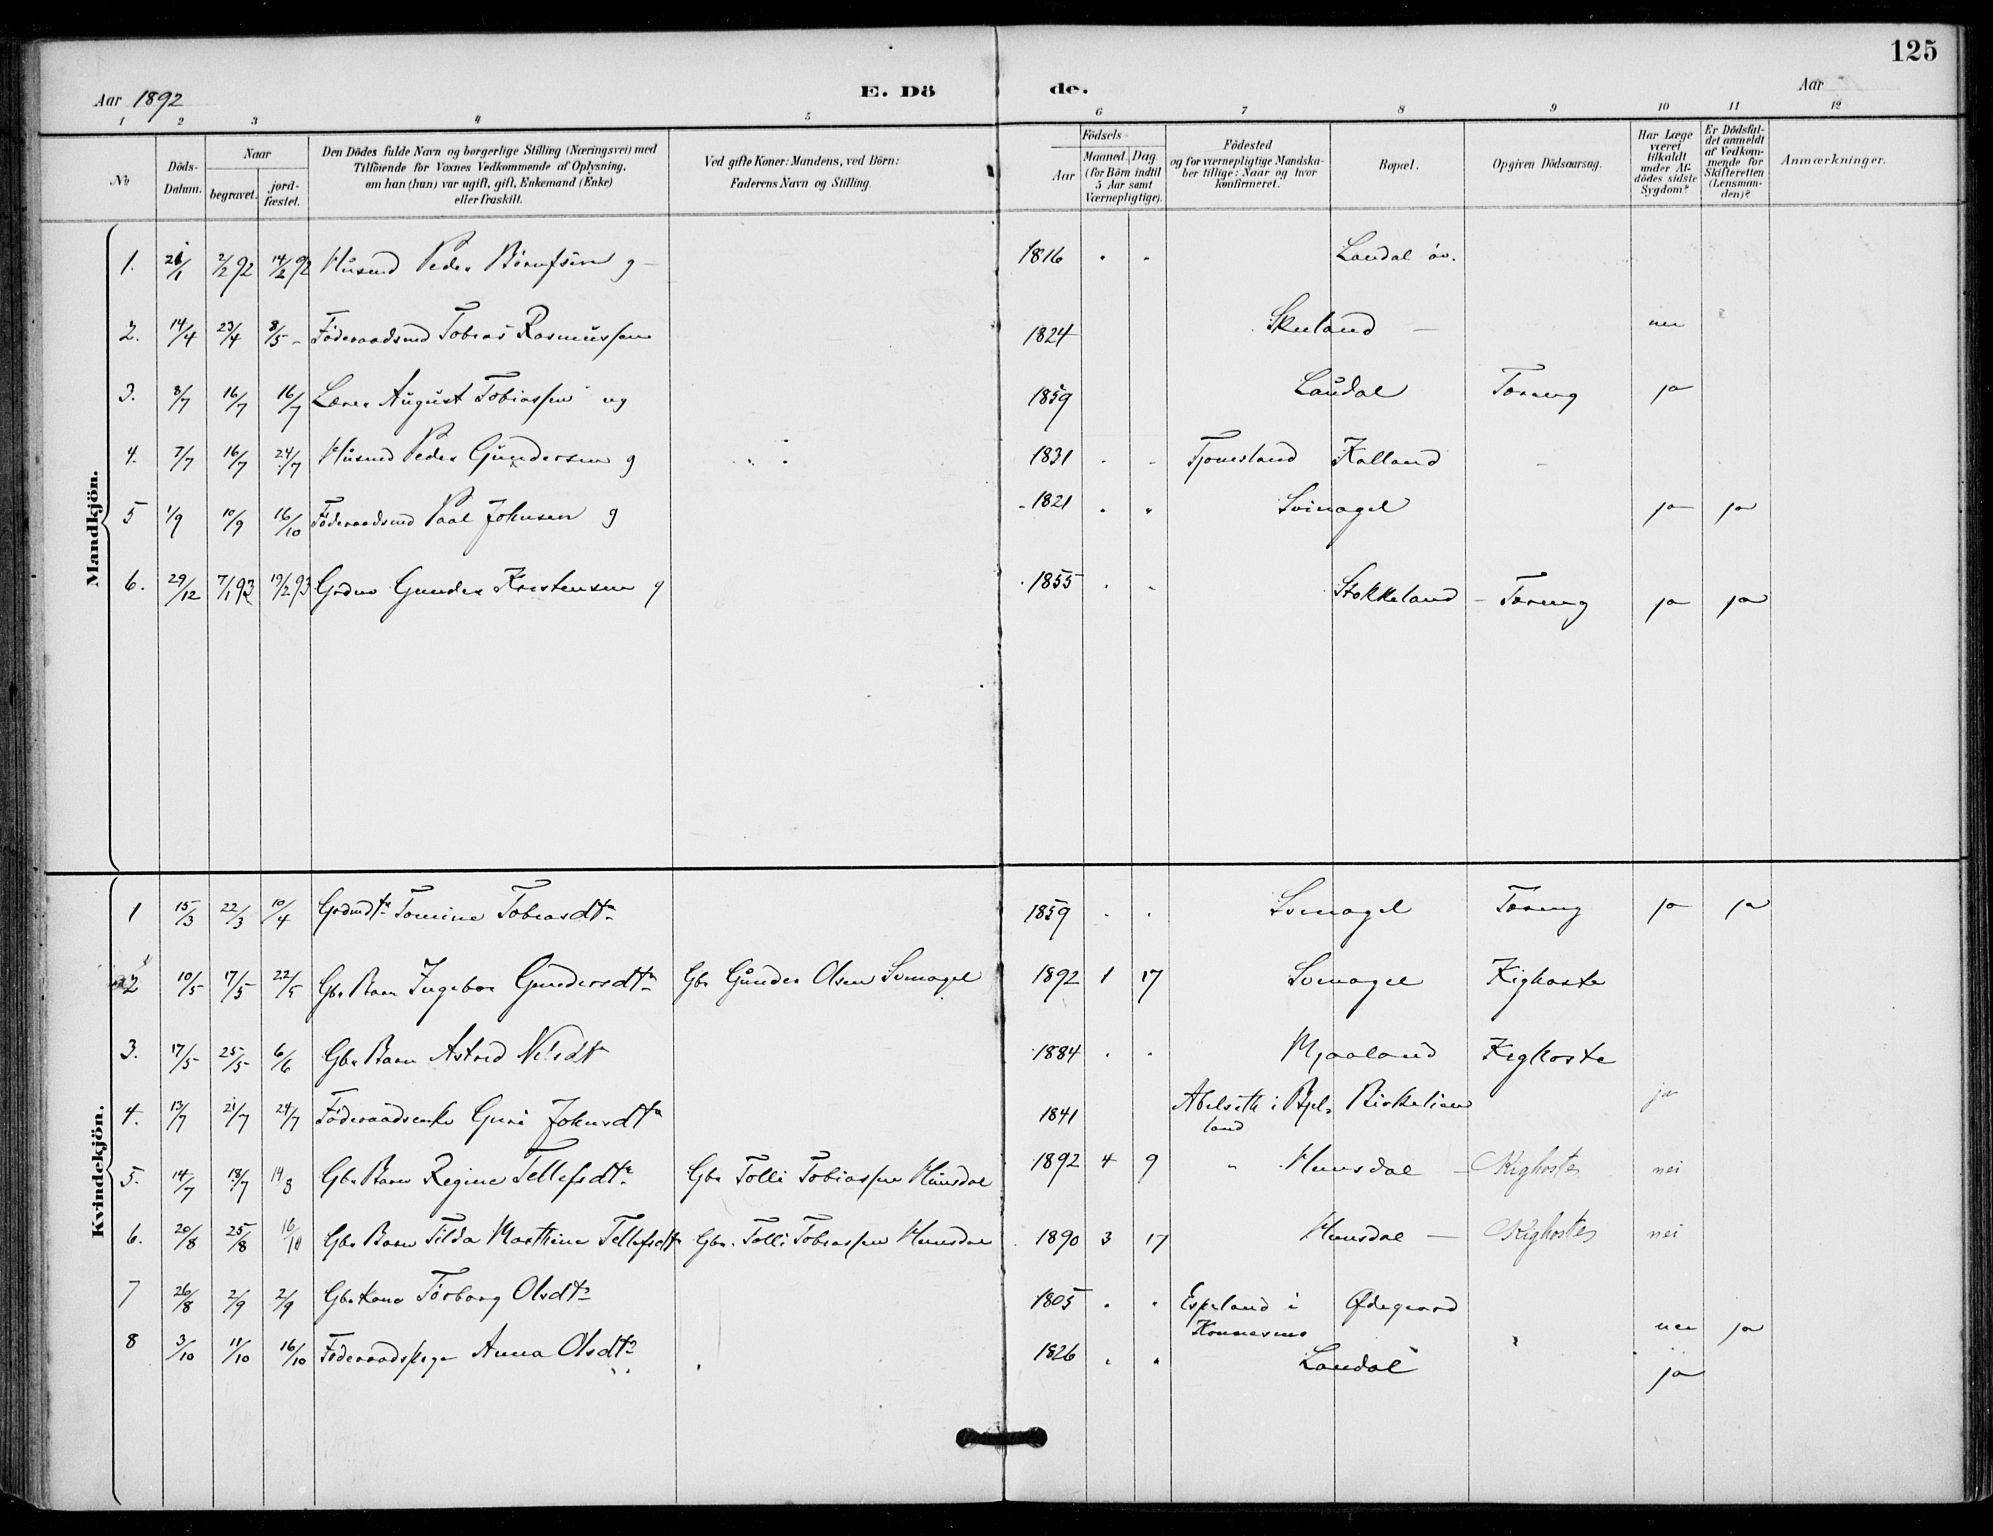 125
Aar 1892 E. Dö de. Aar
1 2 3 4 5 6 7 8 9 10 11 12
No
Döds-Datum.
Naar
begravet.
jord-fæstet.
Den Dödes fulde Navn og borgerlige Stilling (Næringsvei) med
Tilföiende for Voxnes Vedkommende af Oplysning,
om han (hun) var ugift, gift, Enkemand (Enke)
eller fraskilt.
Ved gifte Koner: Mandens, ved Börn:
Faderens Navn og Stilling.
Födsels-
Aar
Maaned. Dag.
(for Börn indtil
5 Aar samt
Værnepligtige).
Födested
og for værnepligtige Mandska-
ber tillige: Naar og hvor
konfirmeret.
Bopæl.
Opgiven Dödsaarsag.
Har Læge
været
tilkaldt
under Af-
dödes sidste
Sygdom?
Er Dödsfal-
det anmeldt
af Vedkom-
mende for
Skifteretten
(Lensman-
den)?
Anmærkninger.
Mandkjön.
1. 2/2 92 14/2 92 Husmd Peder g 1816 Laudal öv.
2. 14/4 23/4 8/5 Föderaadsmd Tobias Rasmussen 1824 Skuland nei
3. 8/7 16/7 16/7 Lærer August Tobiassen ug 1859 Laudal Tæring ja
4. 7/7 16/7 24/7 Husmd Peder Gundersen g 1831 Tjomsland Kalland
5 1/9 10/9 16/10 Föderaadsmd Paal Johnsen g 1821 Svinagel ja ja
6. 29/12 7/1 93 19/2 93 Gunder Kristensen g 1855 Stokkeland Tæring ja ja
Kvindekjön.
1 15/3 22/3 10/4 Tomine Tobiasdtr 1859 Svinagel Tæring ja ja
2 10/5 17/5 22/5 Gbr Barn Ingebor Gundersdtr Gbr Gunder Olsen Svinagel 1892 1 17 Svinagel Kighoste
3. 17/5 25/5 6/6 Gbr Barn Astrid Nilsdtr 1884 Mjaaland Kighoste
4. 13/7 21/7 24/7 Föderaadsenke Guri Johnsdtr 1841 Abelseth i Bjel-
land Birkelien ja
5. 14/7 18/7 14/8 Gbr Barn Regine Tellefsdtr Gbr Tolli Tobiassen Hunsdal 1892 4 9 " Hunsdal Kighoste nei
6. 20/8 25/8 16/10 Gbr Barn Tilda Marthine Tellefsdtr Gbr. Tolli Tobiassen Hunsdal 1890 3 17 Hunsdal Kighoste nei
7 26/8 2/9 2/9 Gbr Kone Torborg Olsdtr 1805 Espeland i
Konnesmo Ødegaard nei ja
8 3/10 11/10 16/10 Anna Olsdtr 1826 Laudal ja